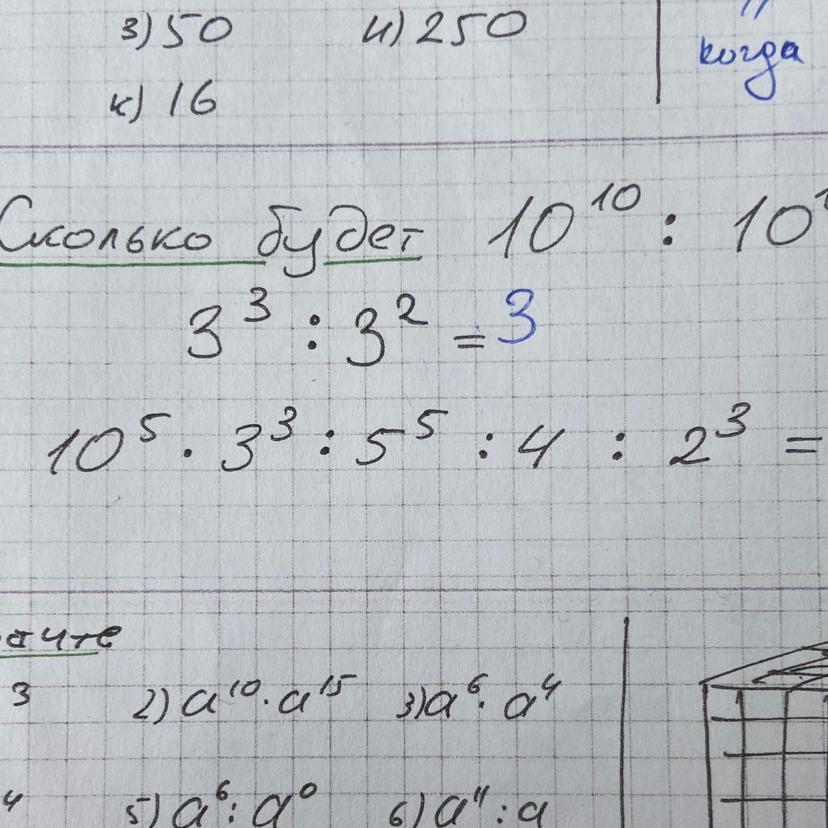 з) 50 и) 250
когда
к) 16
Сколько будет 10¹⁰ : 10
3³ : 3² = 3
10⁵ · 3³ : 5⁵ : 4 : 2³ =
3 2) a¹⁰ · a¹⁵ 3) a⁶ · a⁴
4 5) a⁶ : a⁰ 6) a¹¹ : a